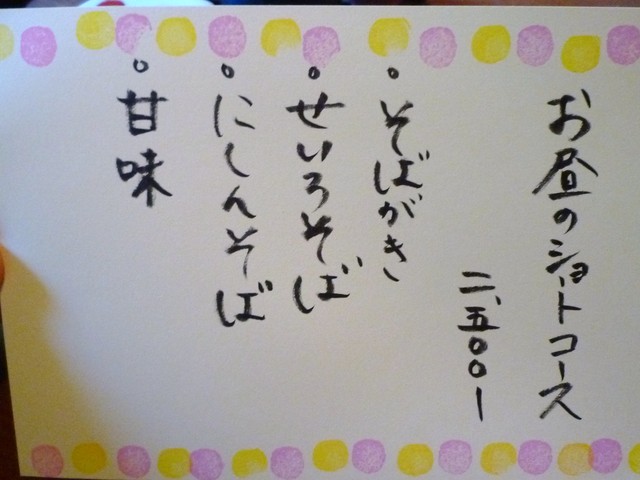 お昼のショートコース
二、五〇〇ー
。そばがき
。せいろそば
。にしんそば
。甘味